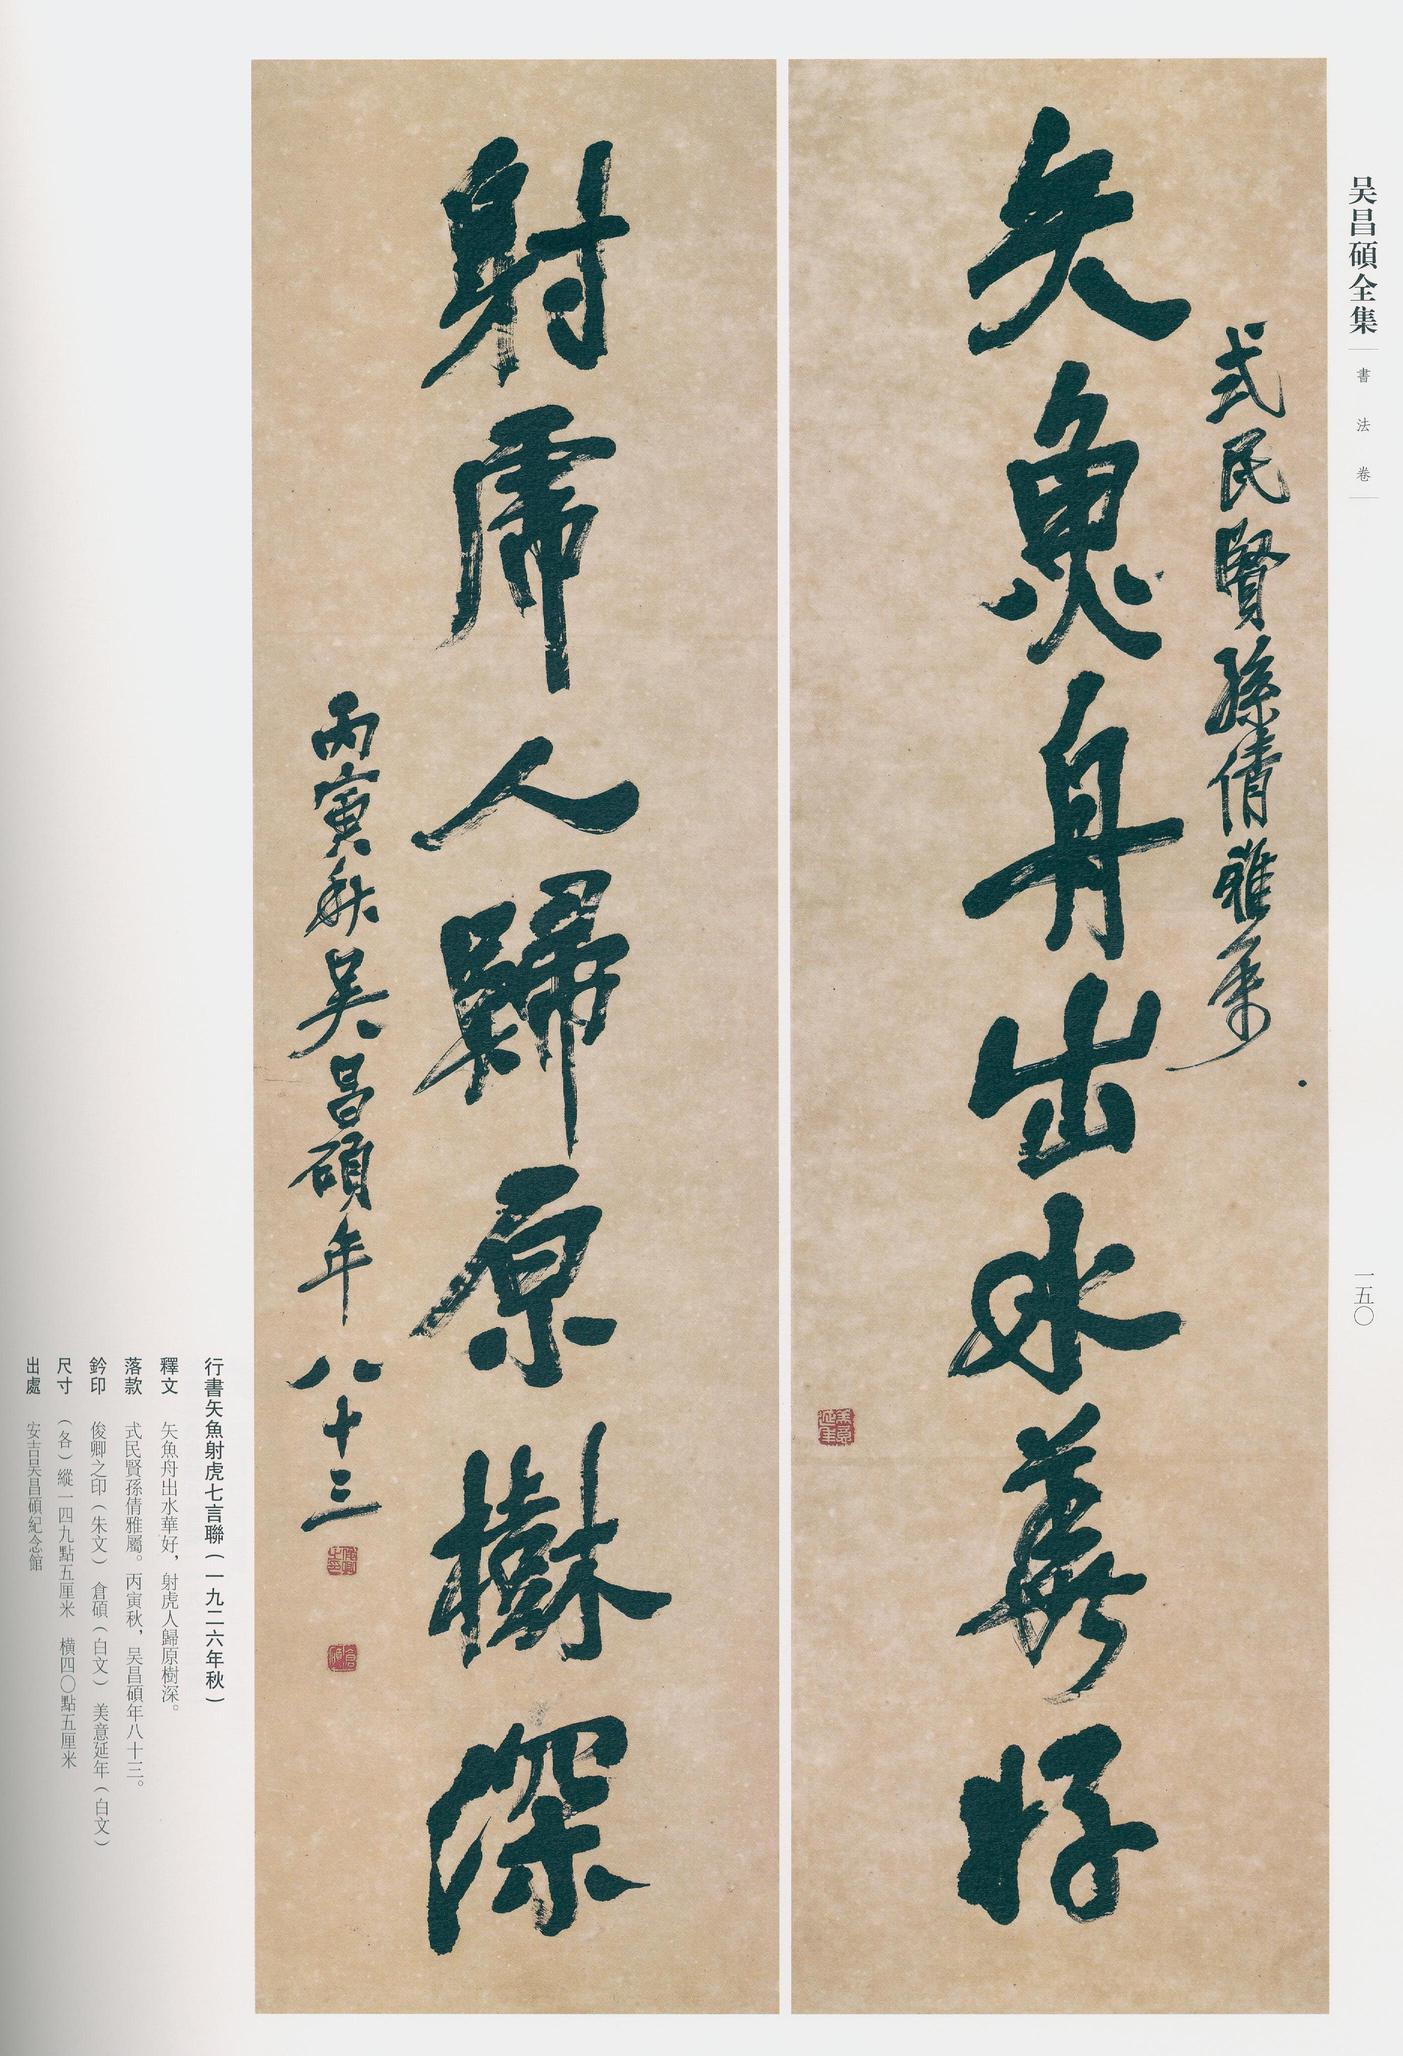 吴昌碩全集
書法卷
一五〇
式民賢孫倩雅屬
矢魚舟出水華好
美意延年
射虎人歸原樹深
丙寅秋吴昌碩年八十三
俊卿之印
倉碩
行書矢魚射虎七言聯（一九二六年秋）
釋文　矢魚舟出水華好，射虎人歸原樹深。
落款　式民賢孫倩雅屬。丙寅秋，吴昌碩年八十三。
鈐印　俊卿之印（朱文）　倉碩（白文）　美意延年（白文）
尺寸　（各）縱一四九點五厘米　橫四〇點五厘米
出處　安吉吴昌碩紀念館